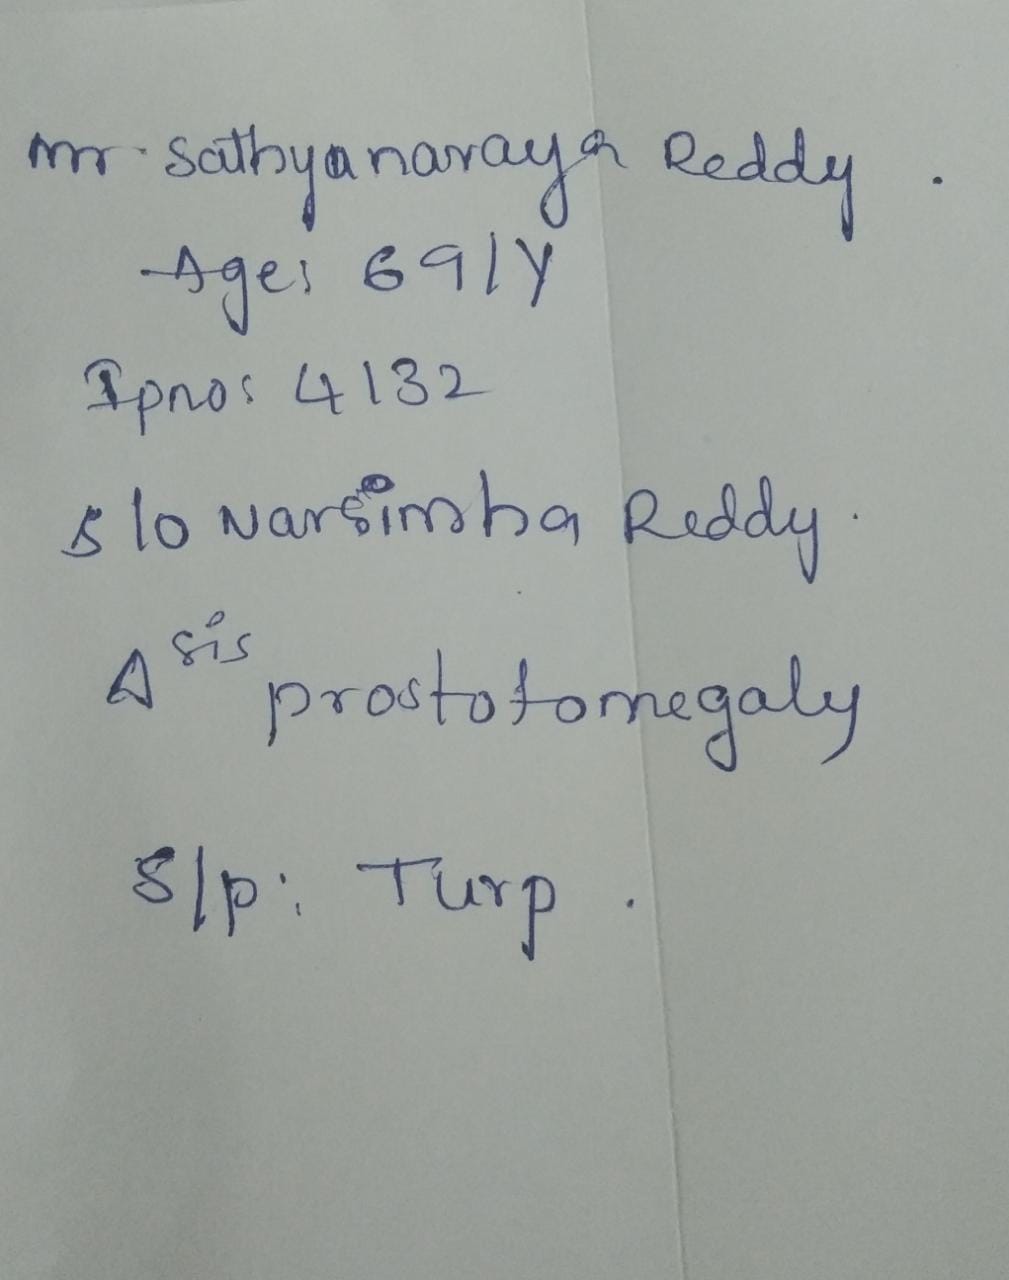 Mr. Sathyanaraya Reddy.
Age: 69/Y
Ipno: 4132
S/o Narsimha Reddy.
Δsis prostotomegaly
S/p: Turp.